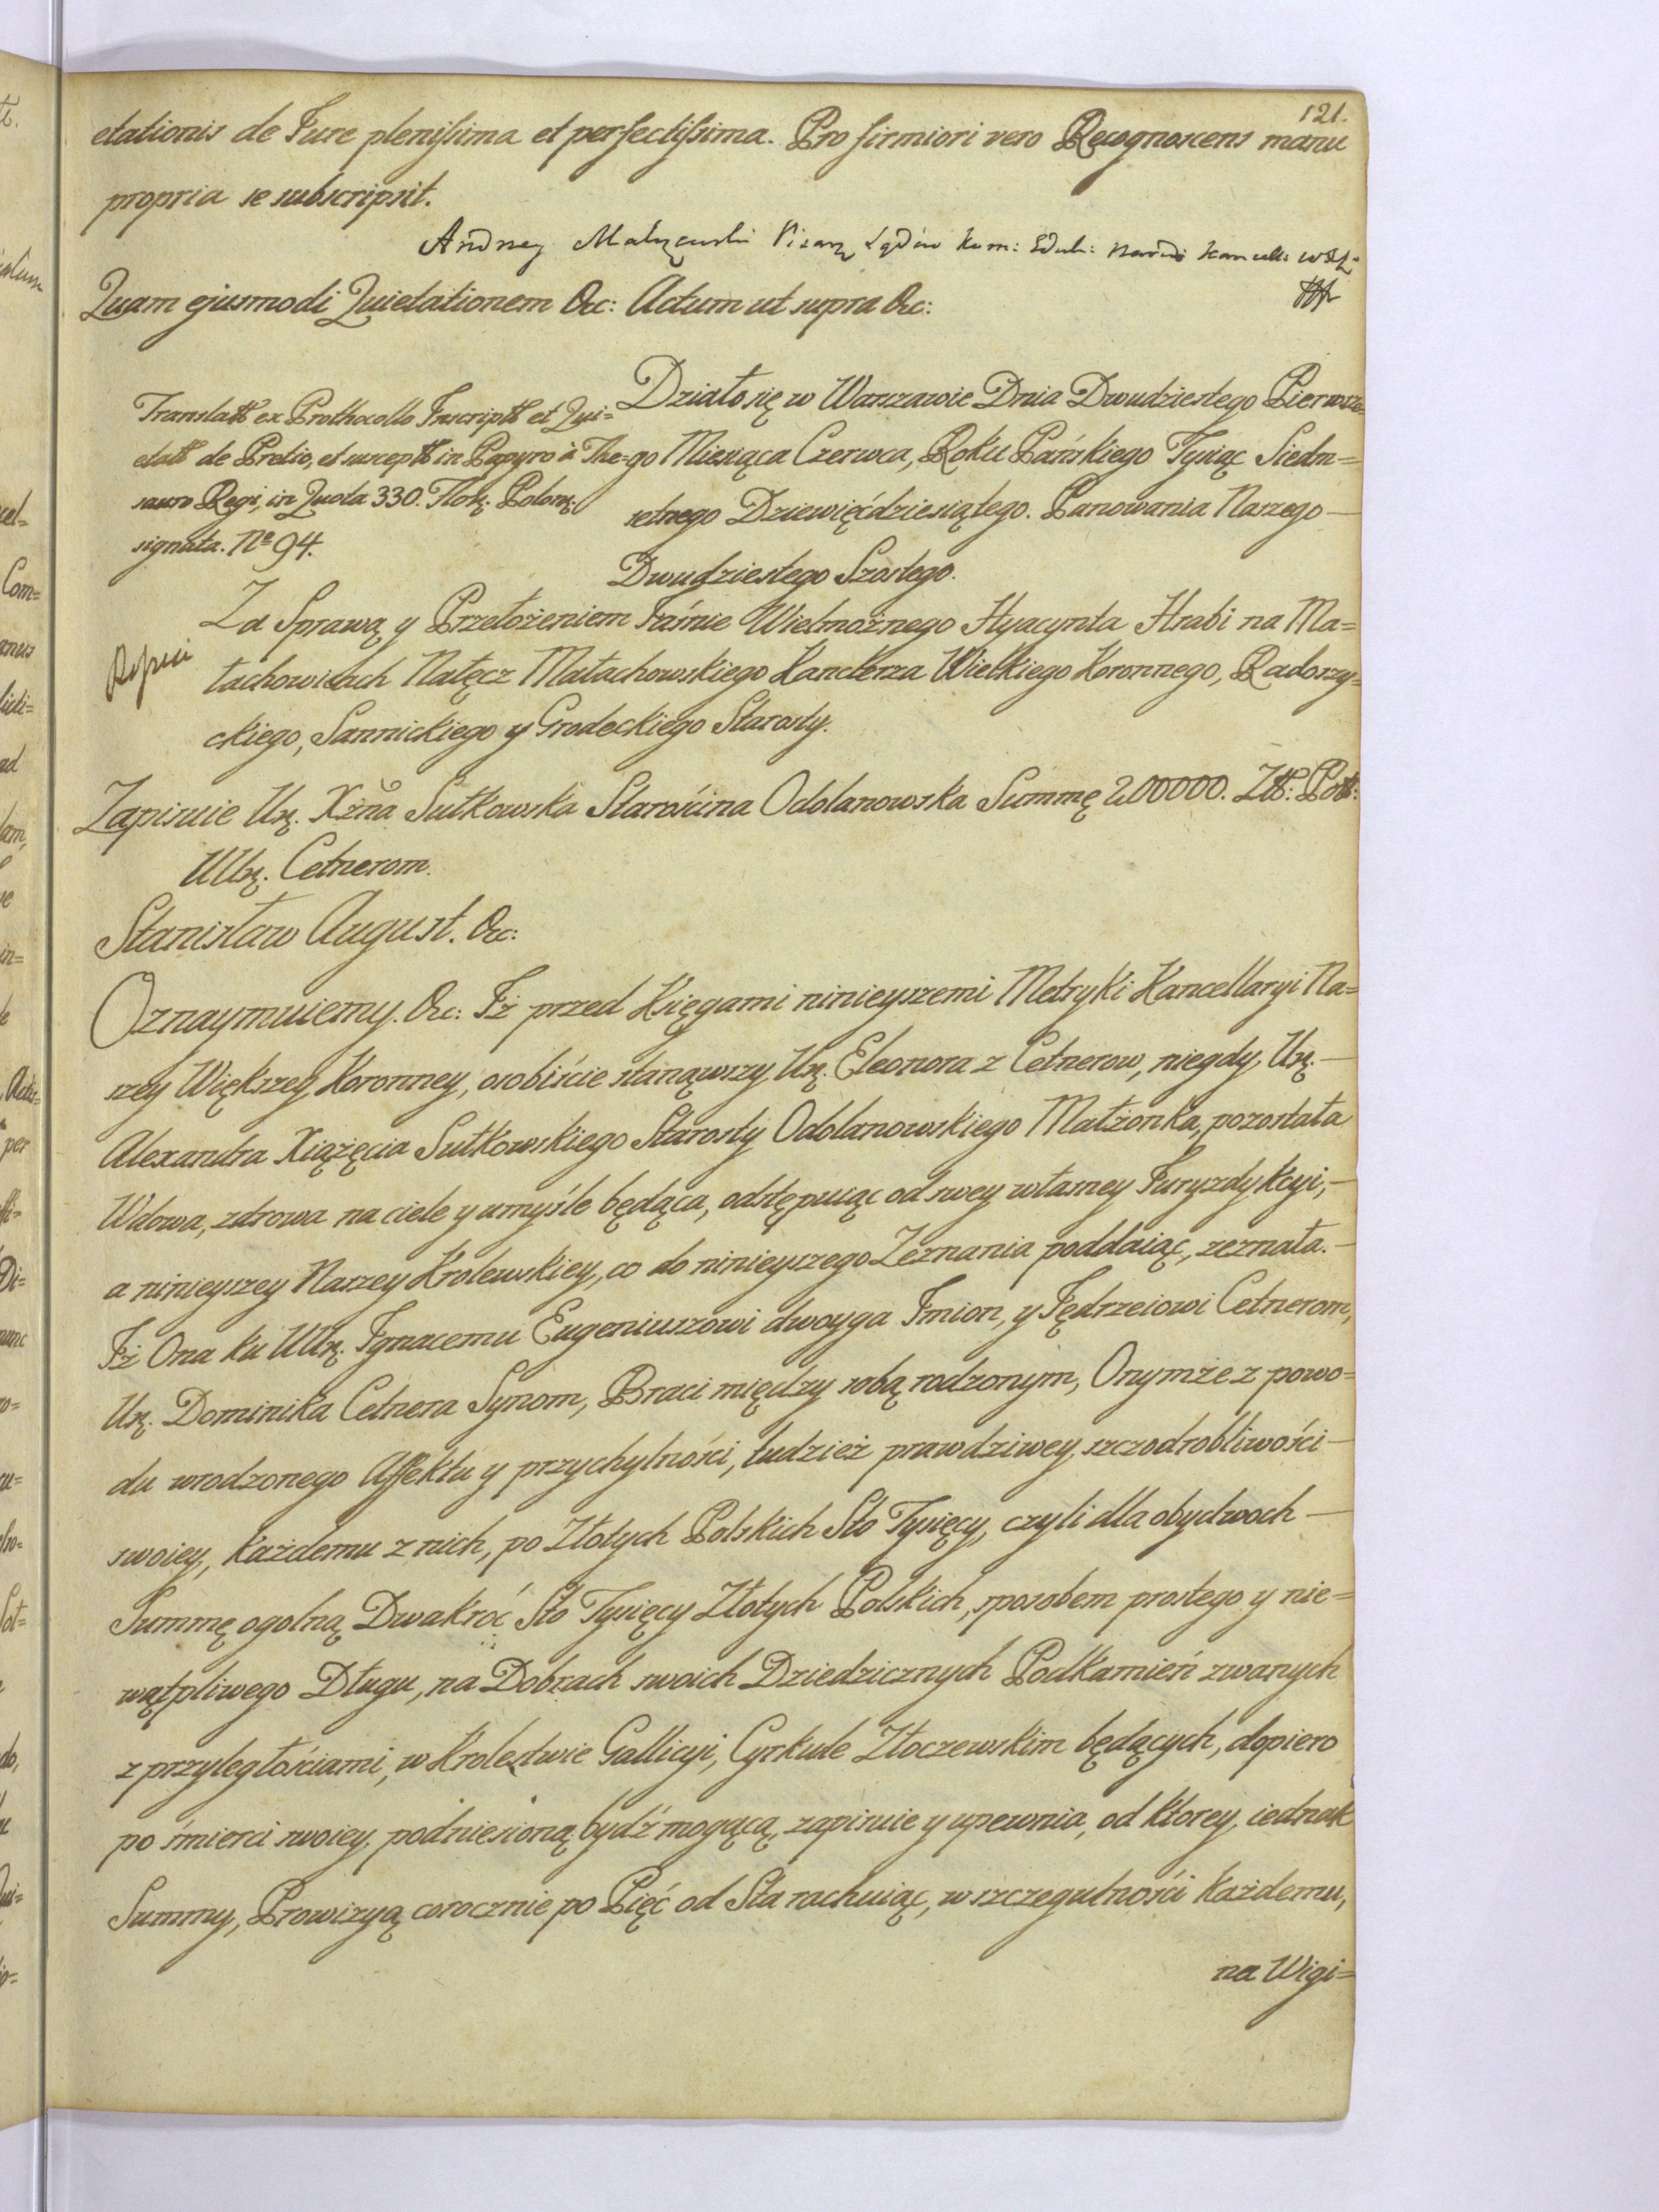 121.
etationis de Jure plenissima et perfectissima. Pro firmiori vero Recognoscens manu
propria se subscripsit.
Andrzey Małyczewski Pisarz Sądów Kom: Eduk: Narodo Kancell:
Quam ejusmodi Quietationem &c: Actum ut supra &c:
Działo się w Warszawie Dnia Dwudziestego Pierwsze-
go Miesiąca Czerwca, Roku Pańskiego Tysiąc Siedm=
setnego Dziewięćdziesiątego. Panowania Naszego —
Dwudziestego Szostego.
Translatt ex Prothocollo Inscriptt et Qui=
etatt de Pretio, et susceptt in Papyro à The=
sauro Regi, in Quota 330. Flor. Polon.
signata. No 94.
Za Sprawą y Przełożeniem Jaśnie Wielmożnego Hyacynta Hrabi na Ma=
łachowicach Nałęcz Małachowskiego Kanclerza Wielkiego Koronnego, Radoszy=
ckiego, Sannickiego y Grodeckiego Starosty.
Zapisuie Ur. Xżna Sułkowska Starościna Odolanowska Summę 200000. Złł: Poll:
UUr. Cetnerom.
Stanisław August. &c:
Oznaymuiemy. &c: Iż przed Księgami ninieyszemi Metryki Kancellaryi Na=
szey Większey Koronney, osobiście stanąwszy Ur. Eleonora z Cetnerow, niegdy Ur. —
Alexandra Xiążęcia Sułkowskiego Starosty Odolanowskiego Małżonka, pozostała
Wdowa, zdrowa na ciele y umyśle będąca, odstępuiąc od swey własney Juryzdykcyi, —
a ninieyszey Naszey Krolewskiey, co do ninieyszego Zeznania poddaiąc, zeznała. —
Iż Ona ku UUr. Ignacemu Eugeniuszowi dwoyga Imion, y Jędrzeiowi Cetnerom,
Ur. Dominika Cetnera Synom, Braci między sobą rodzonym, Onymże z powo=
du wrodzonego Affektu y przychylności, tudzież prawdziwey szczodrobliwości —
swoiey, każdemu z nich, po Złotych Polskich Sto Tysięcy, czyli dla obydwoch —
Summę ogolną Dwakroć Sto Tysięcy Złotych Polskich, sposobem prostego y nie=
wątpliwego Długu, na Dobrach swoich Dziedzicznych Podkamień zwanych
z przyległościami, w Krolestwie Gallicyi, Cyrkule Złoczewskim będących, dopiero
po śmierci swoiey podniesioną bydź mogącą, zapisuie y upewnia, od ktorey iednak
Summy, Prowizyą corocznie po Pięć od Sta rachuiąc, w szczegulności każdemu,
na Wigi=